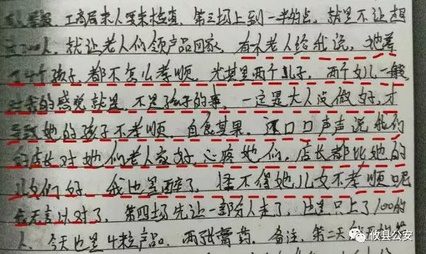 工商局来人要来检查，第三场上到一半的点，就是不让超
过100人，就让老人们领产品回家，有个老人给我说，她养
了4个孩子，都不怎么孝顺，尤其是两个儿子，两个女儿一般
给我的感觉就是，不是孩子的事，一定是大人没做好，才
导致她的孩子不孝顺，自食其果，还口口声声说我们
的店长对她们老人家好，心疼她们，店长都比她的
儿女们好，我也是醉了，怪不得她儿女不孝顺呢
我无言以对了，第四场先让一部分人走了，只上了100的
人，今天也是4粒产品，两张膏药，备注，第二天
攸县公安